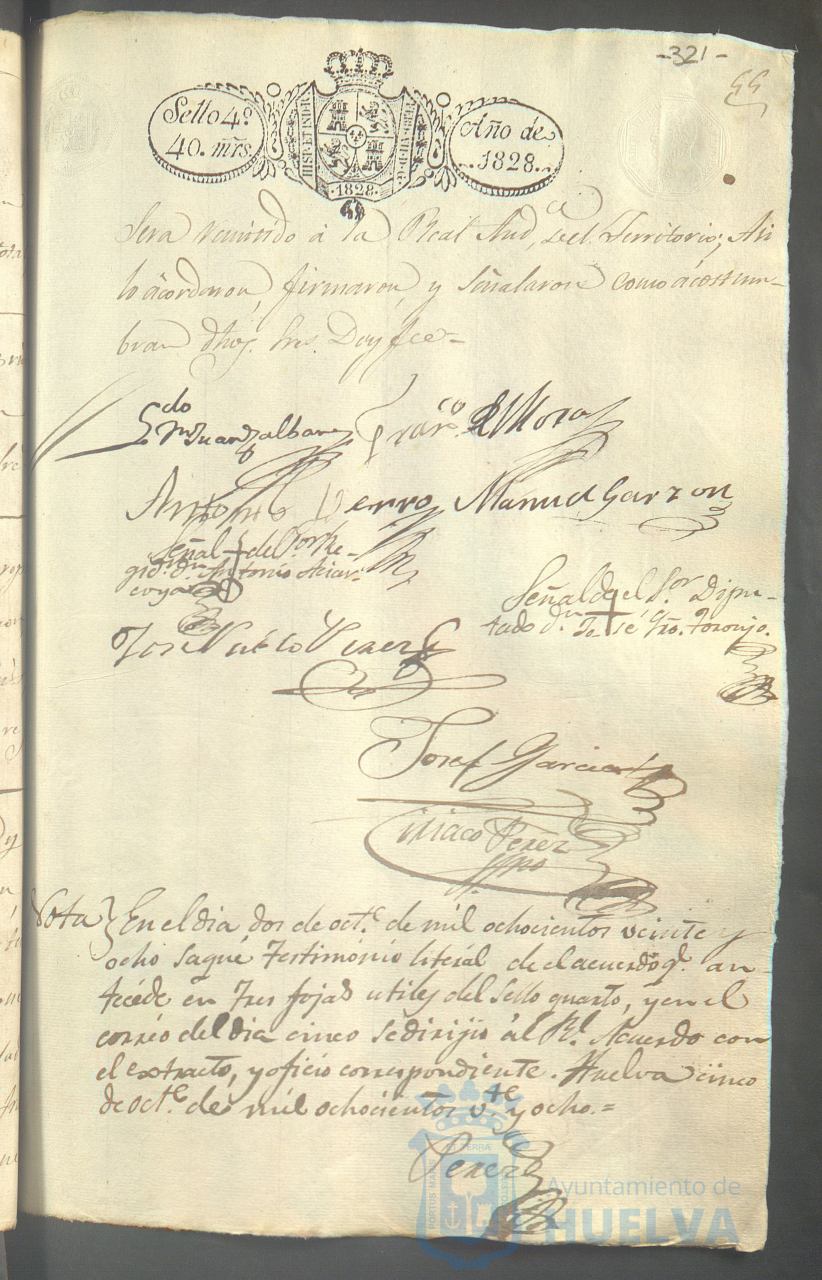 -321-
55
Sello 4º
40. mrs.
HISP. ET IND. R.
1828.
Año de
1828.
Será remitido á la Real Aud.ca del Territorio; Asi
lo acordaron, firmaron, y señalaron como acostum-
bran dhos. Sres. Doy fee=
Ldo Dn Juan
Franco de Mora
Antonio Fierro
Manuel Garzon
Señal + del Sor Re-
gidor dn Antonio
Señal + de el Sor. Dipu-
tado dn José Gro. Toronjo.
Josef Garcia
Ciriaco Perez
Ssno
Nota } En el dia dos de octe. de mil ochocientos veinte y
ocho saqué Testimonio literal de el acuerdo qe. an-
tecéde en Tres fojas utiles del sello quarto, y en el
corréo del dia cinco se dirijio ál Rl. Acuerdo con
el extracto, y oficio correspondiente. Huelva cinco
de octe. de mil ochocientos vte y ocho.=
Perez
Ayuntamiento de
HUELVA